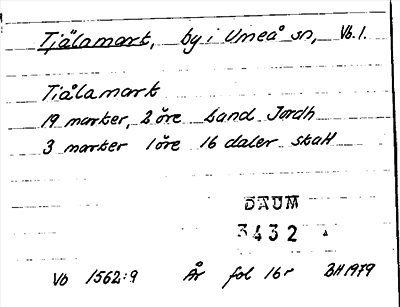 Tjälamark, by i Umeå sn, Vb.1.
Tiälamark
19 marker, 2 öre Land Jordh
3 marker 1 öre 16 daler skatt
DAUM
3432
Vb 1562:9 År fol 16r BH1979